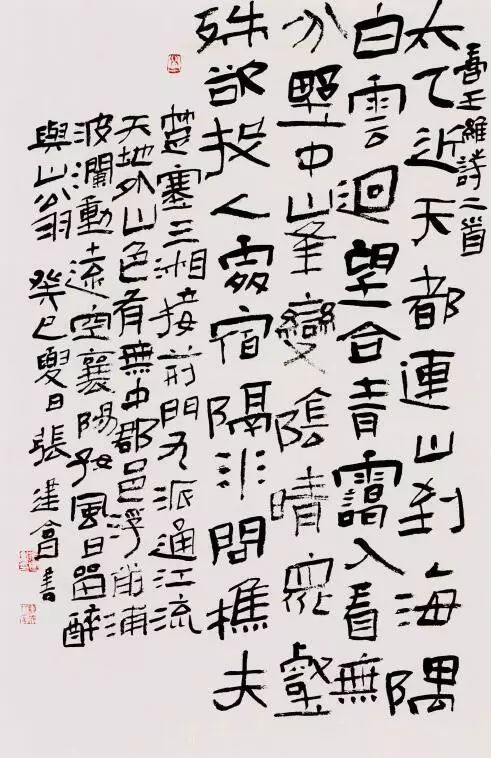 書王維詩二首
太乙近天都連山到海隅
白雲迴望合青靄入看無
分野中峰變陰晴眾壑
殊欲投人處宿隔水問樵夫
楚塞三湘接荊門九派通江流
天地外山色有無中郡邑浮前浦
波瀾動遠空襄陽好風日留醉
與山翁 癸巳夏日張建會書